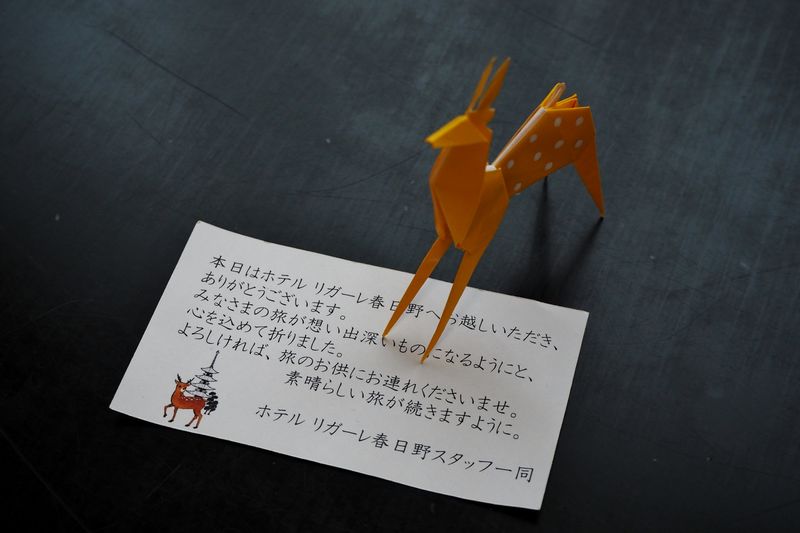 本日はホテル リガーレ春日野へお越しいただき、
ありがとうございます。
みなさまの旅が想い出深いものになるようにと、
心を込めて折りました。
よろしければ、旅のお供にお連れくださいませ。
素晴らしい旅が続きますように。
ホテル リガーレ春日野スタッフ一同